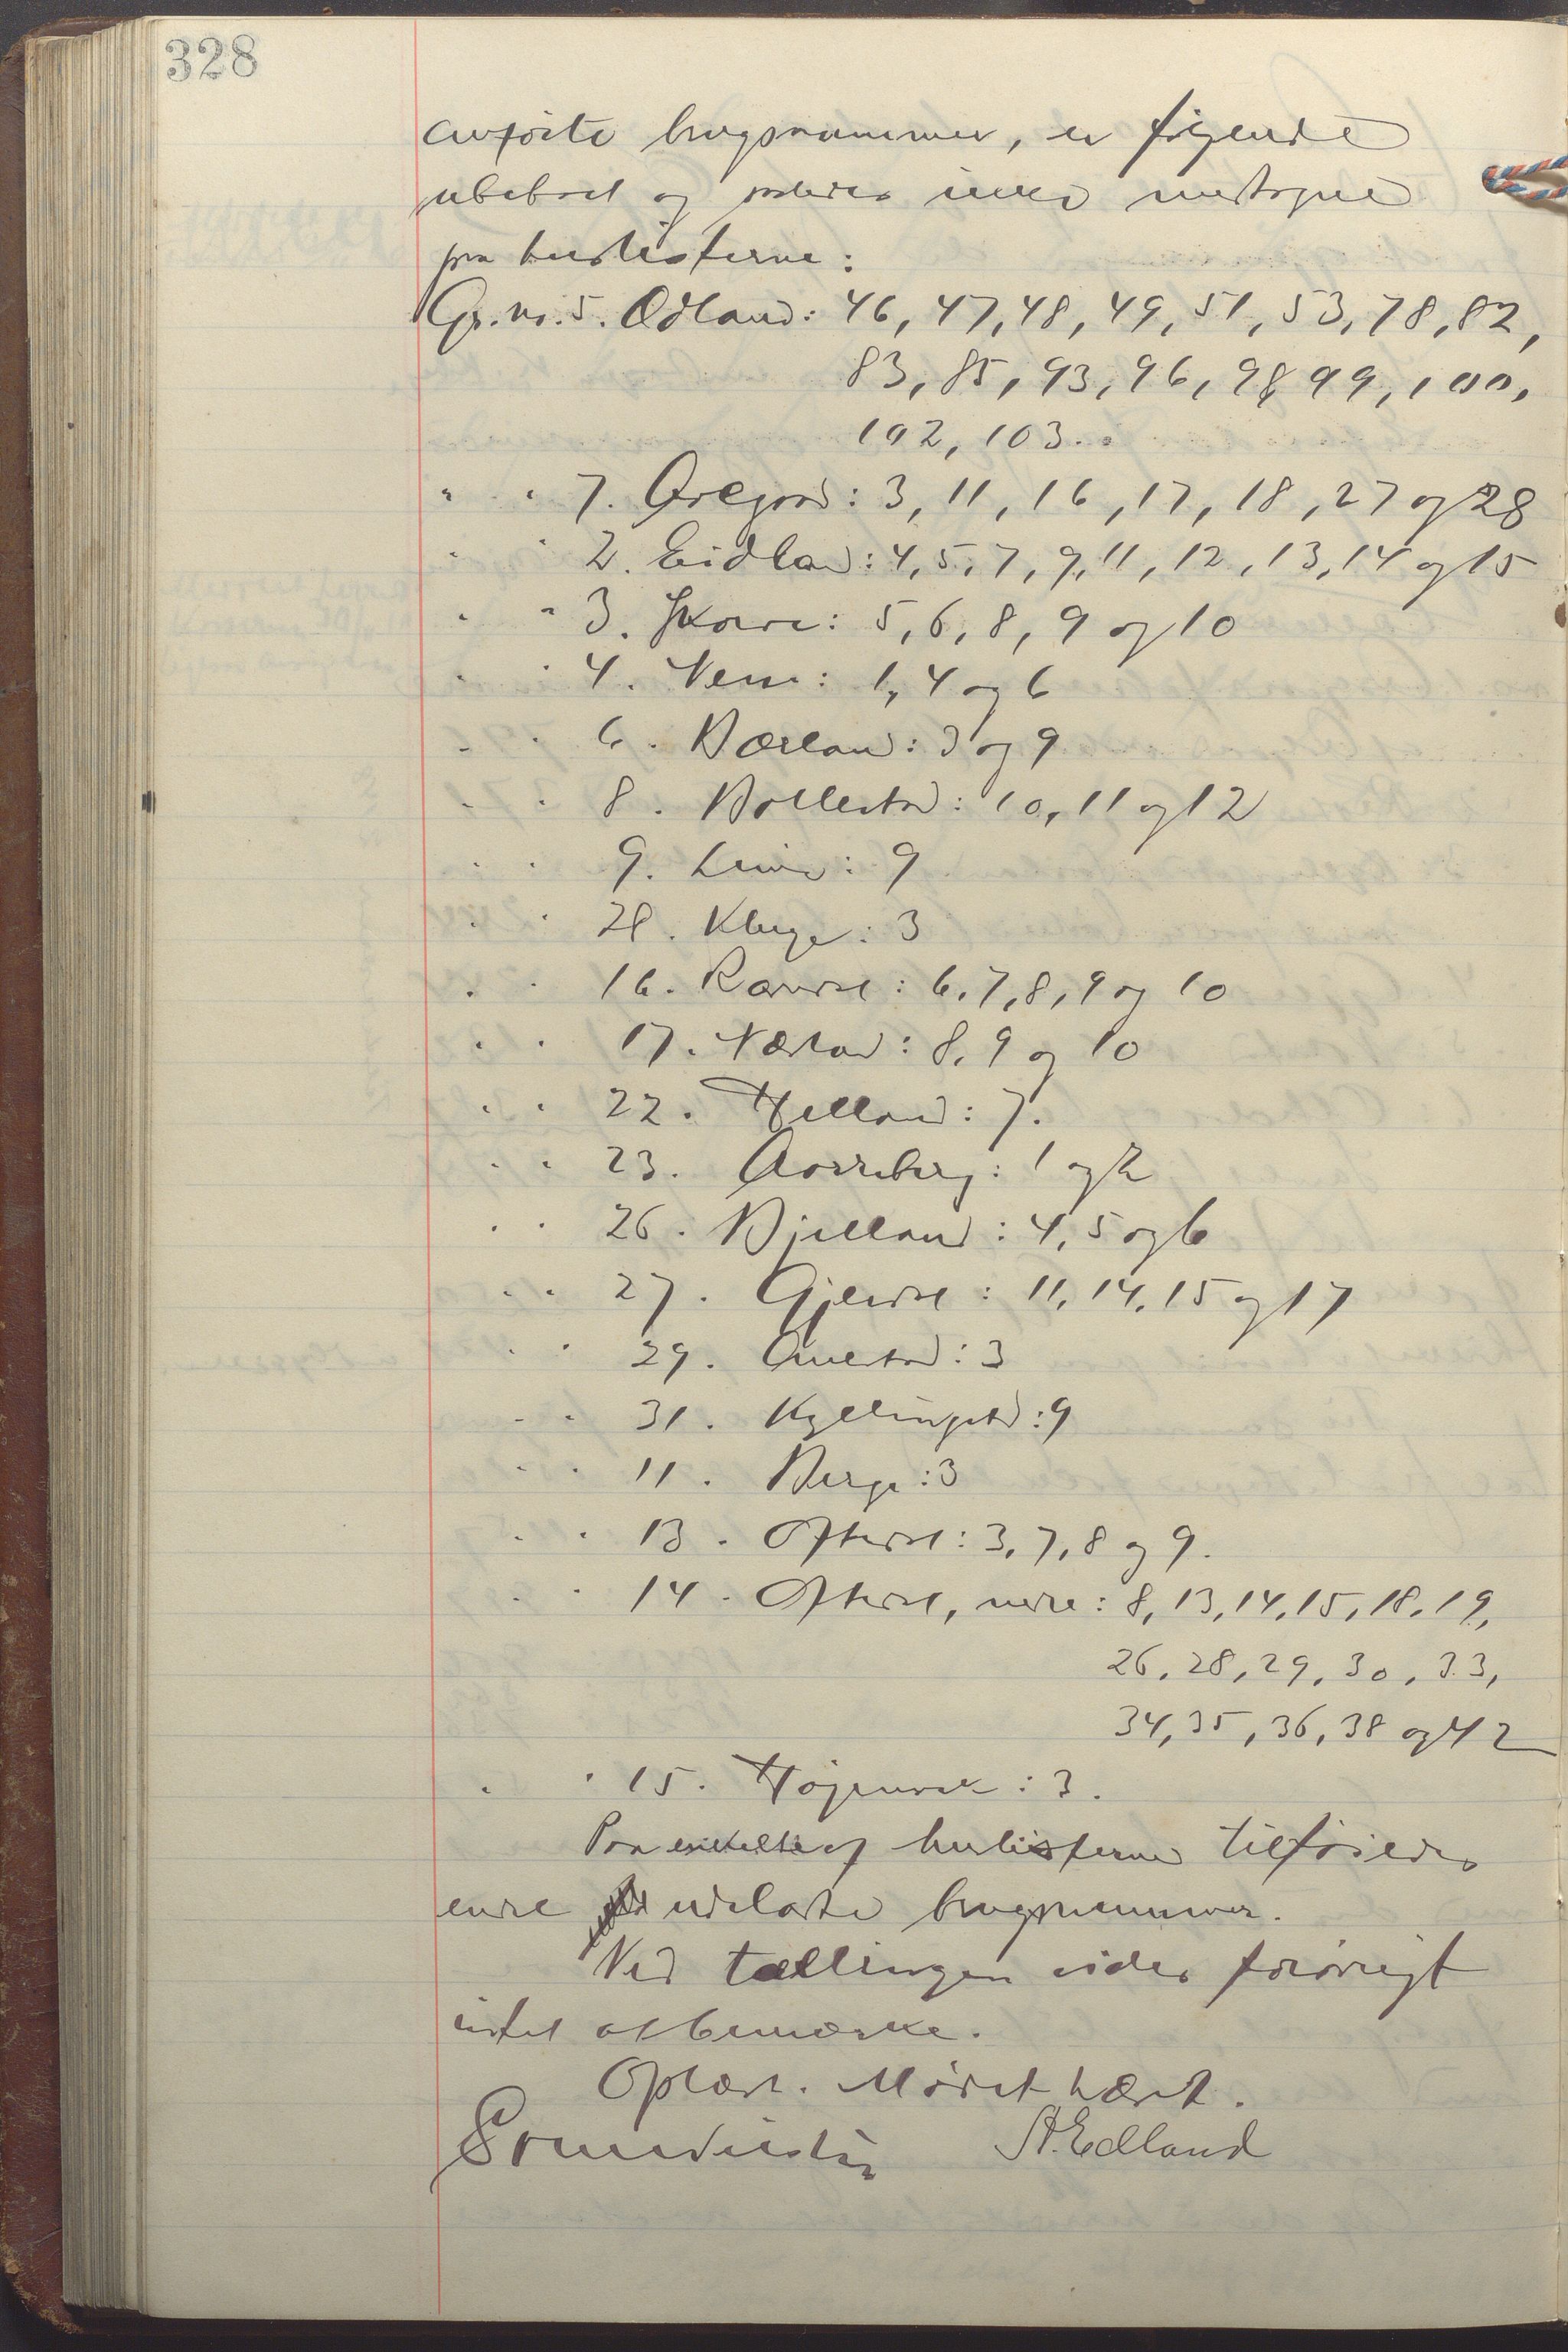 328
anførte brugsnummer, er følgende
ubeboet og saaledes ikke medtagne
paa huslisterne:
Gr. nr. 5. Ødland: 46, 47, 48, 49, 51, 53, 78, 82,
83, 85, 93, 96, 98, 99, 100,
102, 103.
" " 7. Øregaard: 3, 11, 16, 17, 18, 27 og 28
" " 2. Eidland: 4, 5, 7, 9, 11, 12, 13, 14 og 15
" " 3. Skaare: 5, 6, 8, 9 og 10
" " 4. : 1, 4 og 6
" " 6. Bærland: 3 og 9
" " 8. Bollestad: 10, 11 og 12
" " 9. : 9
" " 28. Kluge: 3
" " 16. : 6, 7, 8, 9 og 10
" " 17. Næstad: 8, 9 og 10
" " 22. Helland: 7.
" " 23. : 1 og 2
" " 26. Bjelland: 4, 5 og 6
" " 27. Gjerdset: 11, 14, 15 og 17
" " 29. : 3
" " 31. Kyllingstad: 9
" " 11. Berge: 3
" " 13. Oftedal: 3, 7, 8 og 9.
" " 14. Oftedal, nedre: 8, 13, 14, 15, 18, 19,
26, 28, 29, 30, 33,
34, 35, 36, 38 og 42
" " 15. : 3.
Paa enkelte af huslisterne tilføiedes
endel udeladte brugsnummer.
Ved tællingen vides forøvrigt
intet at bemærke.
Oplæst. Mødet hævet.
St. Edland